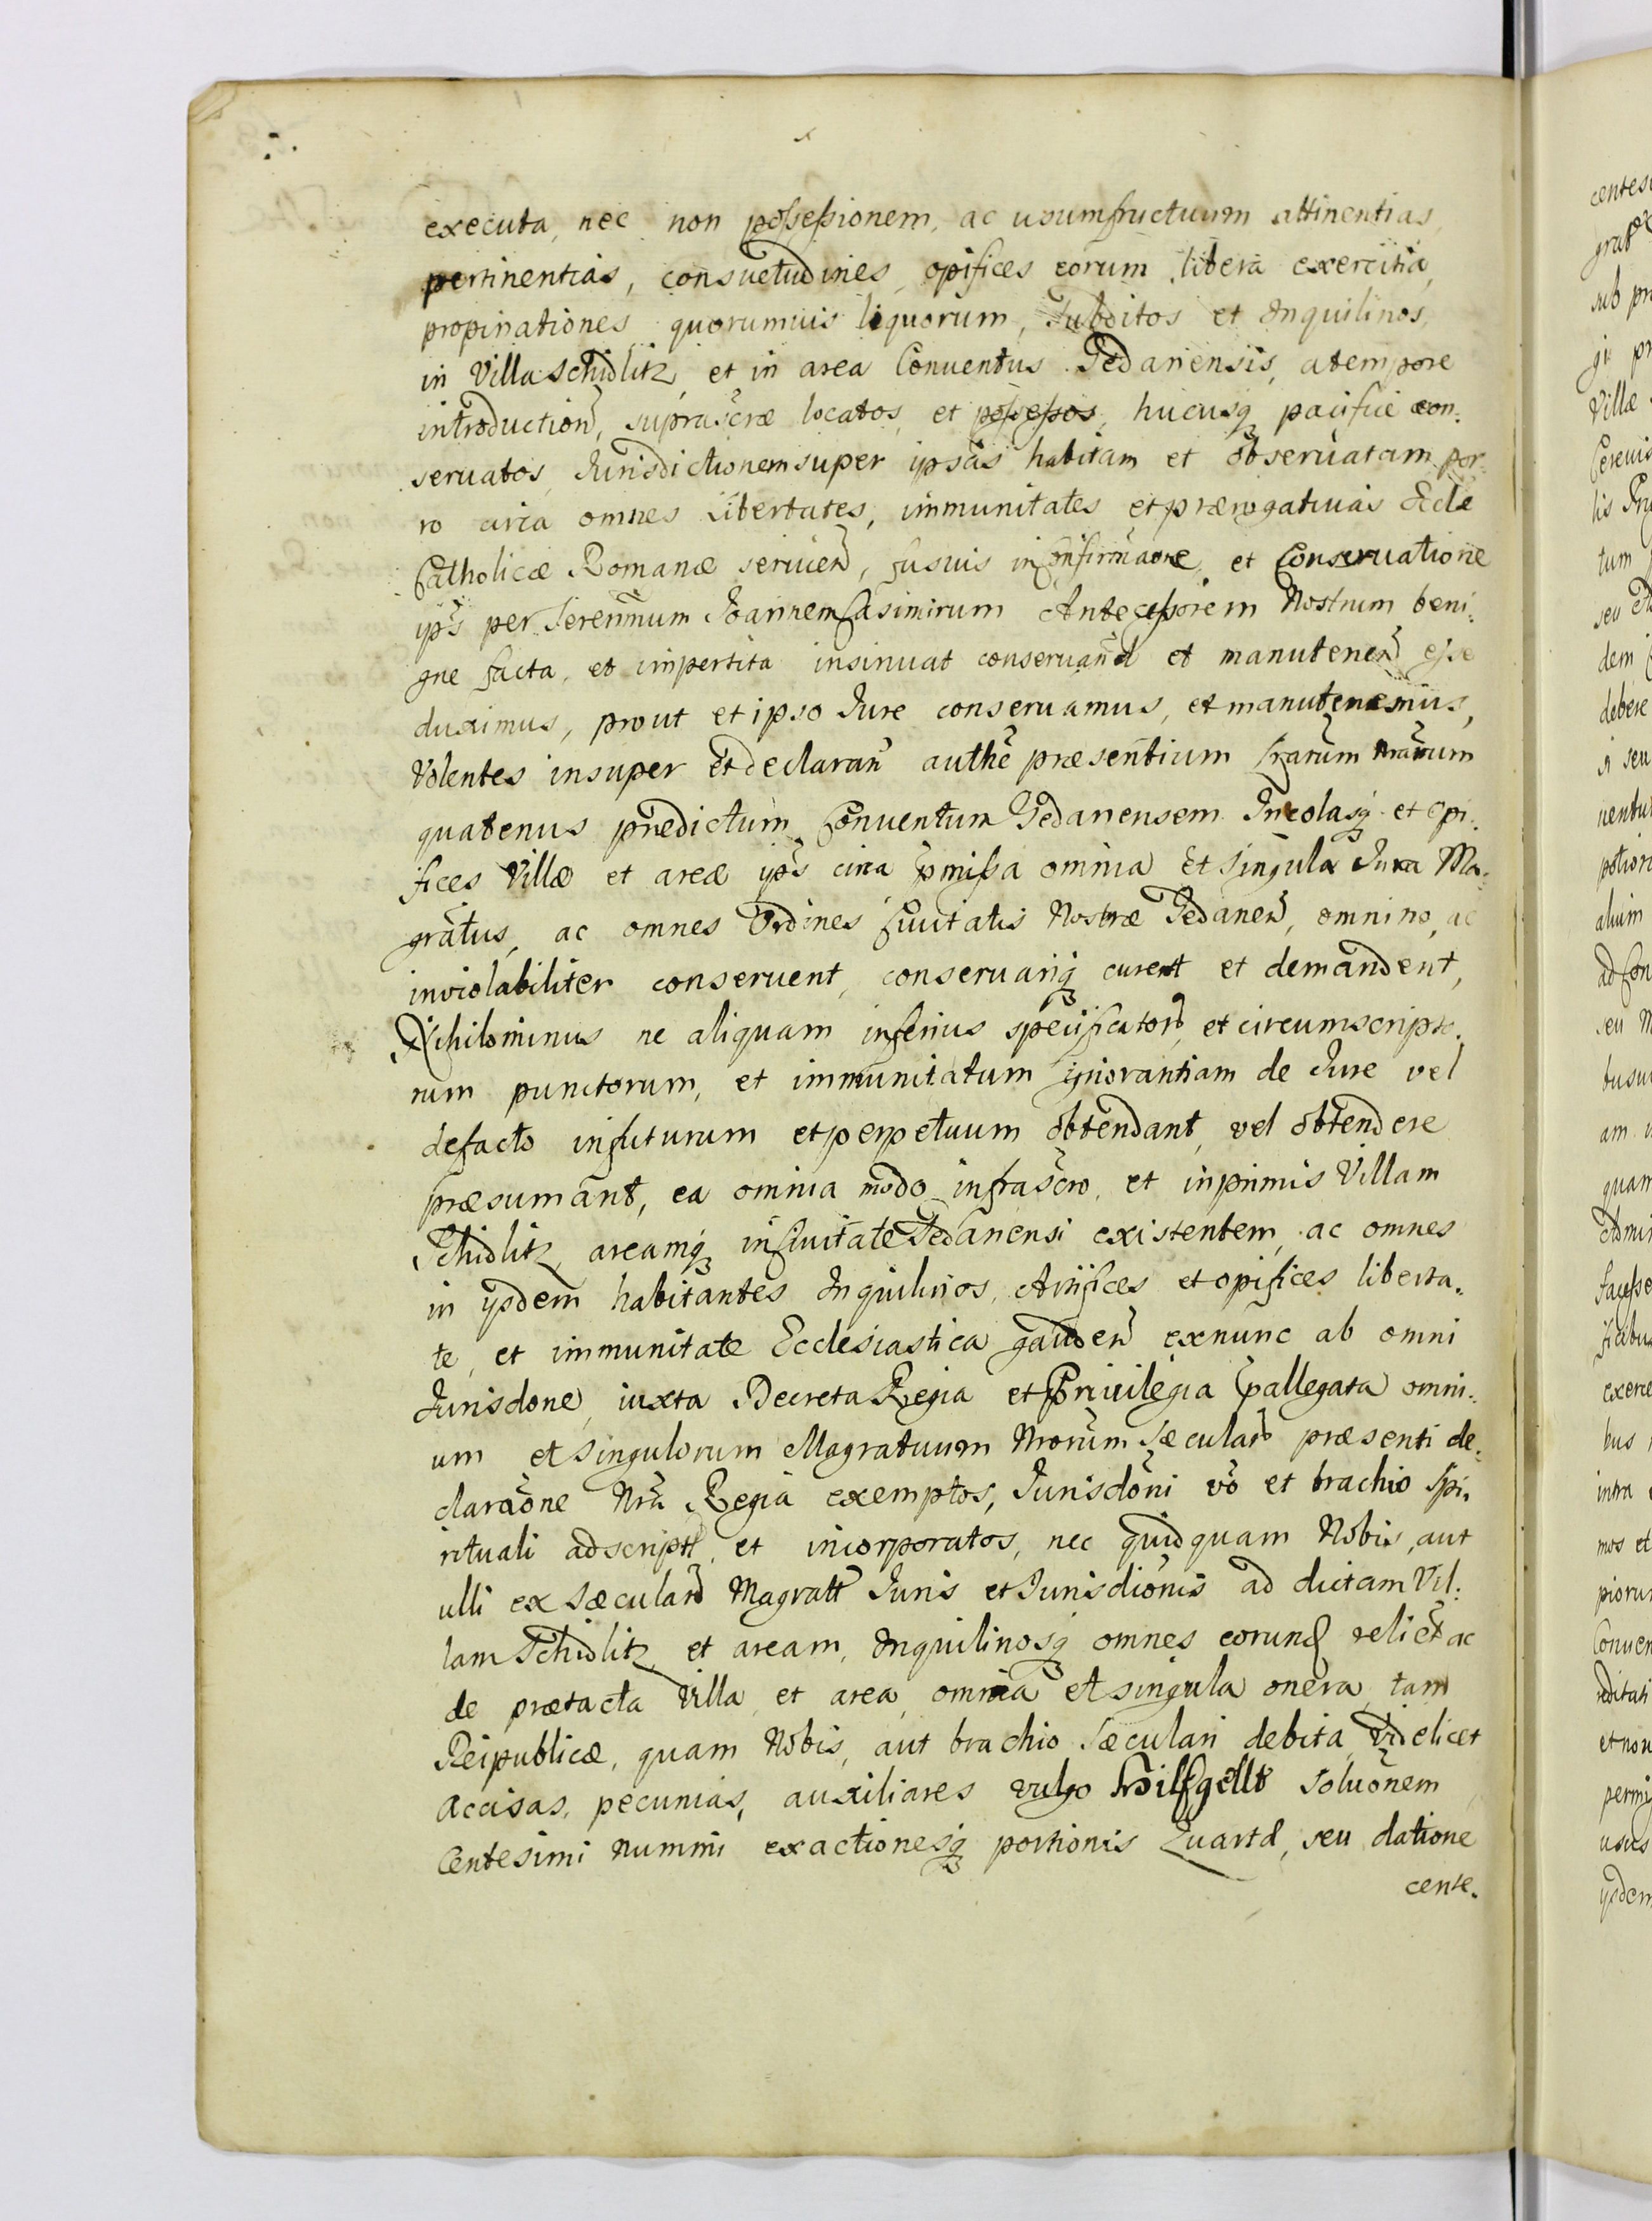 executa, nec non possessionem, ac usumfructuum attinentias,
pertinentias, consuetudines, opifices eorum, libera exercitia,
propinationes quorumuis liquorum, Subditos et Inquilinos,
in Villa Schidlitz, et in area Conuentus Gedanensis, a tempore
introduction, suprascræ locatos, et possessos, hucusq pacifice con.
seruatos, Jurisdictionem super ipsas habitam et obseruatam por
ro circa omnes Libertates, immunitates et prærogatiuas Eclæ
Catholicæ Romanæ seruien, fusius in Confirmaone, et Conseruatione
yps per Serenmum Joannem Casimirum Antecessorem Nostrum beni.
gne facta, et impertita insinuat conseruand et manutenen esse
duximus, prout et ipso Jure conseruamus, et manutenemus,
Volentes insuper et declaran authe præsentium Lrarum nrarum
quatenus prædictum Conuentum Gedanensem Incolasq et opi.
fices Villæ et areæ yps circa pmissa omnia et singula Jura Ma.
gratus, ac omnes Ordines Ciuitatis Nostræ Gedanen, omnino, ac
inviolabiliter conseruent, conseruariq curent et demandent,
Nihilominus ne aliquam inferius specificator, et circumscripto.
rum punctorum, et immunitatum ignorantiam de Jure vel
defacto in futurum et perpetuum obtendant, vel obtendere
præsumant, ea omnia modo infrascro, et inprimis Villam
Schidlitz, areamq in Ciuitate Gedanensi existentem, ac omnes
in ysdem habitantes Inquilinos, Artifices et opifices liberta.
te, et immunitate Ecclesiastica gauden exnunc ab omni
Jurisdone, iuxta Decreta Regia et Priuilegia pallegata omni.
um et singulorum Magratuum Nrorum Sæcular præsenti de.
claraone Nra Regia exemptos, Jurisdoni vo et brachio Spi.
rituali adscript, et incorporatos, nec quidquam Nobis, aut
ulli ex Sæcular Magratt Juris et Jurisdionis ad dictam Vil.
lam Schidlitz, et aream, Inquilinosq omnes eorund relict ac
de prætacta Villa, et area, omnia et singula onera, tam
Reipublicæ, quam Nobis, aut brachio Sæculari debita, videlicet
Accisas, pecunias, auxiliares vulgo Hilfgellt Soluonem
Centesimi Nummi exactionesq portionis Quartæ, seu datione
cente.